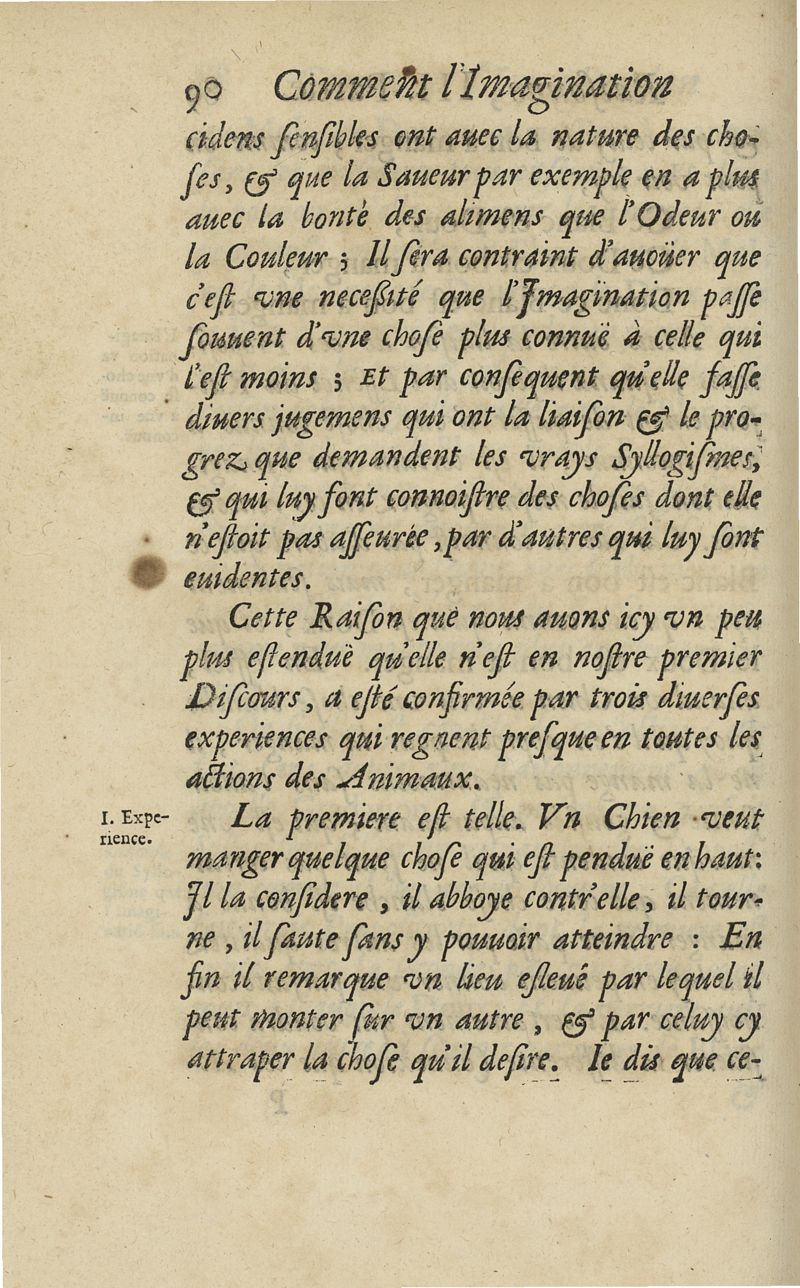 90 Comment l'Imagination
cidens ſenſibles ont auec la nature des cho-
ſes, & que la Saueur par exemple en a plus
auec la bonté des alimens que l'Odeur ou
la Couleur ; Il ſera contraint d'auoüer que
c'eſt vne neceſſité que l'Imagination paſſe
ſouuent d'vne choſe plus connuë à celle qui
l'eſt moins ; Et par conſequent qu'elle faſſe
diuers jugemens qui ont la liaiſon & le pro-
grez que demandent les vrays Syllogiſmes,
& qui luy font connoiſtre des choſes dont elle
n'eſtoit pas aſſeurée, par d'autres qui luy ſont
euidentes.
Cette Raiſon que nous auons icy vn peu
plus eſtenduë qu'elle n'eſt en noſtre premier
Diſcours, a eſté confirmée par trois diuerſes
experiences qui regnent preſque en toutes les
actions des Animaux.
I. Expe-
rience.
La premiere eſt telle. Vn Chien veut
manger quelque choſe qui eſt penduë en haut:
Il la conſidere, il abboye contr'elle, il tour-
ne, il ſaute ſans y pouuoir atteindre : En
fin il remarque vn lieu eſleué par lequel il
peut monter ſur vn autre, & par celuy cy
attraper la choſe qu'il deſire. Ie dis que ce-